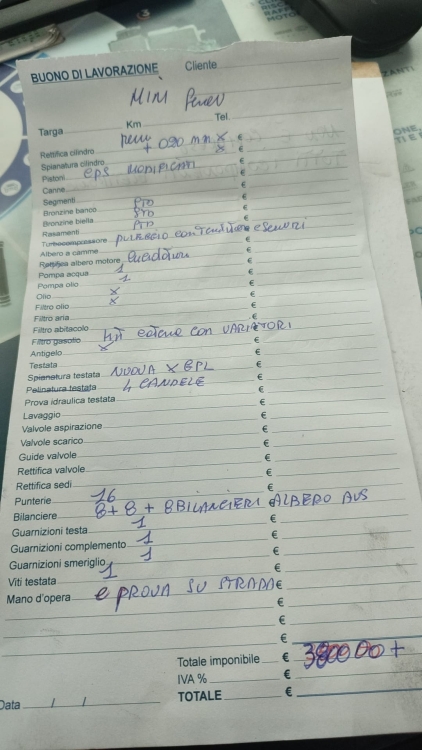 BUONO DI LAVORAZIONE Cliente
MINI
Targa Km Tel.
Rettifica cilindro + 020 mm x €
Spianatura cilindro x €
Pistoni eps MODIFICATI €
Canne €
Segmenti €
Bronzine banco STD €
Bronzine biella STD €
Rasamenti STD €
Turbocompressore €
Albero a came €
Rettifica albero motore €
Pompa acqua 1 €
Pompa olio 1 €
Olio x €
Filtro olio x €
Filtro aria €
Filtro abitacolo €
Filtro gasolio kit catene con VARIATORI
Antigelo x €
Testata €
Spianatura testata NUOVA X GPL €
Pallinatura testata 4 CANDELE €
Prova idraulica testata €
Lavaggio €
Valvole aspirazione €
Valvole scarico €
Guide valvole €
Rettifica valvole €
Rettifica sedi €
Punterie 16 €
Bilanciere 8 + 8 + 8 BILANCIERI ALBERO AUS
Guarnizioni testa 1 €
Guarnizioni complemento 1 €
Guarnizioni smeriglio 1 €
Viti testata 1 €
Mano d'opera e PROVA SU STRADA €
€
€
€
Totale imponibile € +
IVA % €
TOTALE €
Data / /